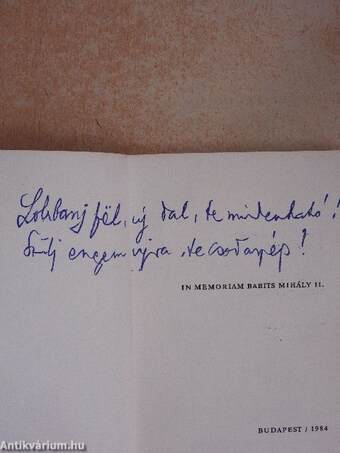 Lobbanj fël, új dal, te mindenható!
Szülj engem újra, te csodagép!
IN MEMORIAM BABITS MIHÁLY II.
BUDAPEST / 1984
Antikvárium.hu